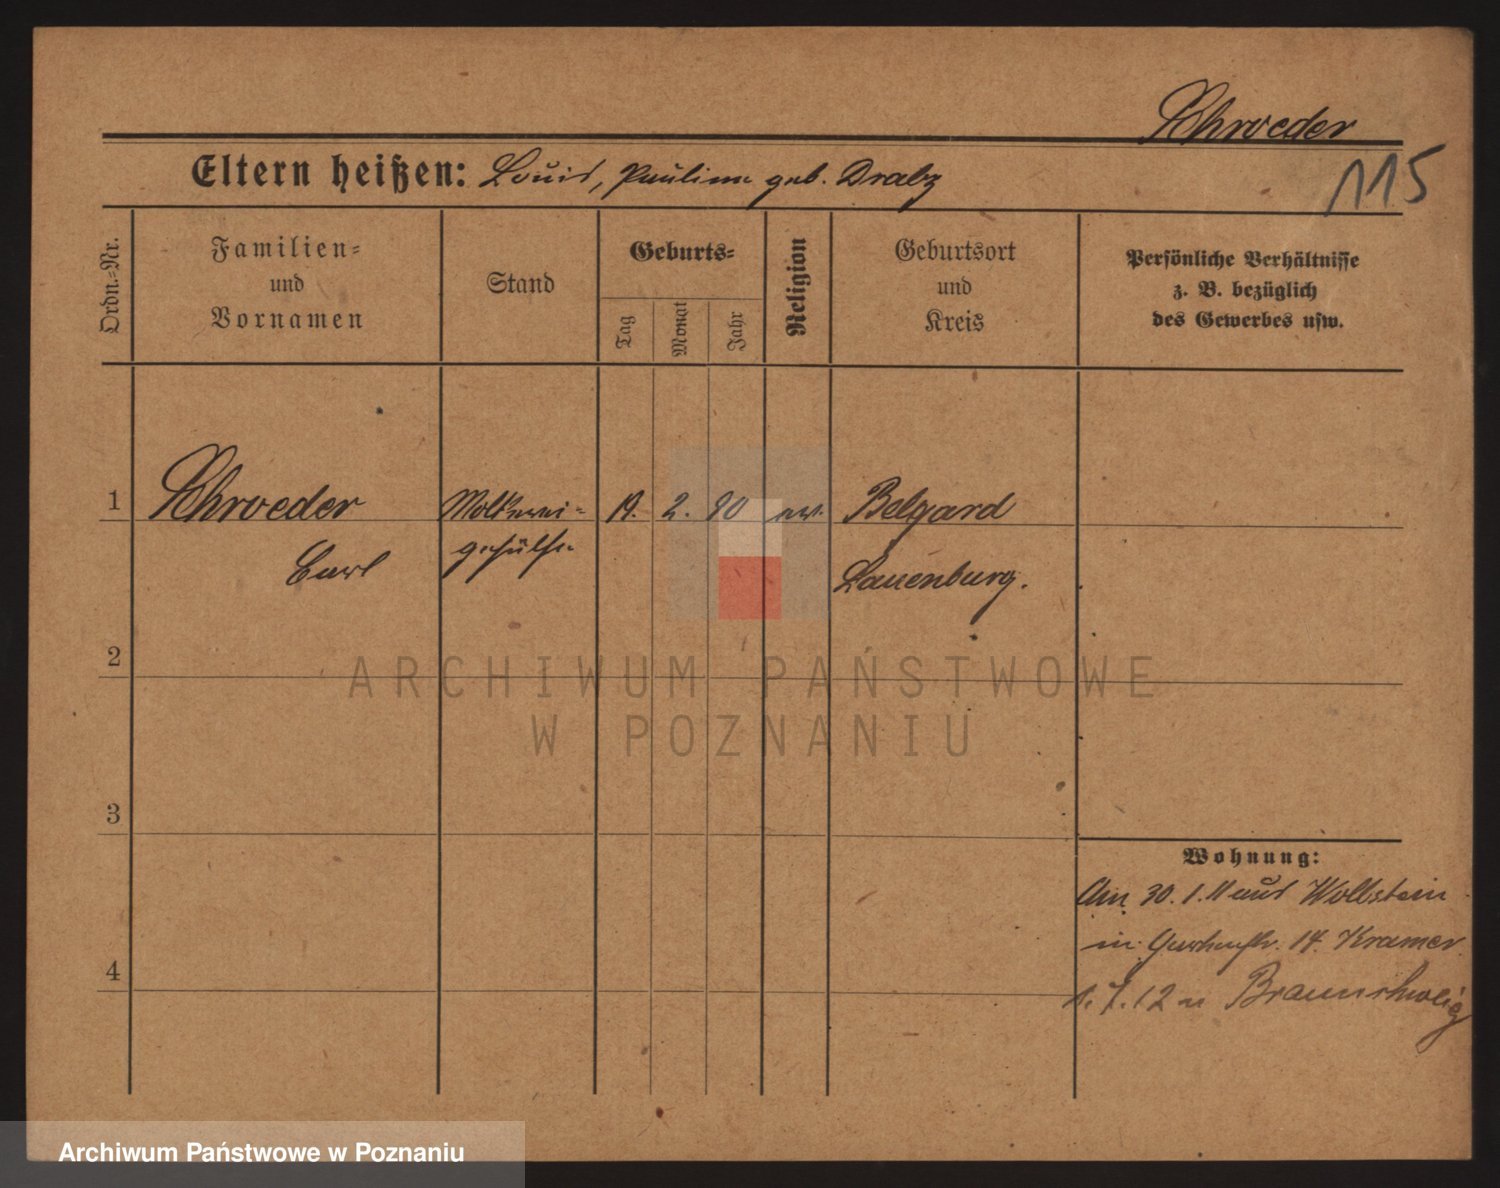 Schroeder
115
Eltern heißen: Louis, Pauline geb. Drabz
Ordn.=Nr.
Familien=
und
Vornamen
Stand
Geburts=
Tag
Monat
Jahr
Religion
Geburtsort
und
Kreis
Persönliche Verhältnisse
z. B. bezüglich
des Gewerbes usw.
1
Schroeder
Carl
Molkerei=
gehülfe
19. 2. 90
ev.
Belgard
Lauenburg.
2
3
4
Wohnung:
Am 30. 1. 11 aus Wollstein
in 14. Kramer
1. 7. 12 n Braunschweig
ARCHIWUM PAŃSTWOWE
W POZNANIU
Archiwum Państwowe w Poznaniu